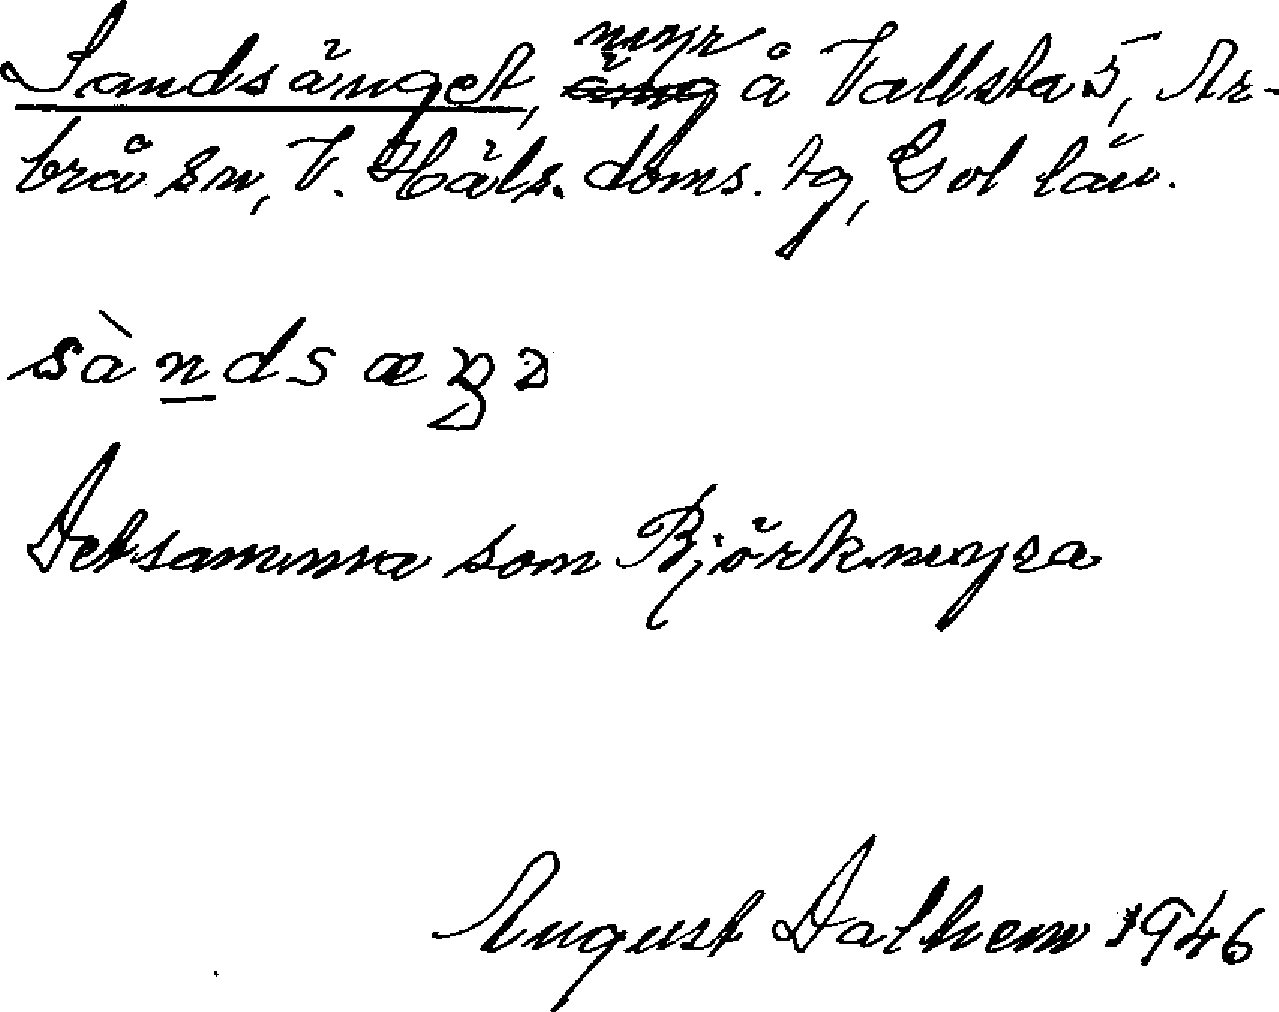 Sandsänget, myr å Vallsta 5, Ar-
brå sn, V. Häls. doms. tg, Gvl län.
sàndsæŋə
Detsamma som Björkmyra
August Dalhem 1946